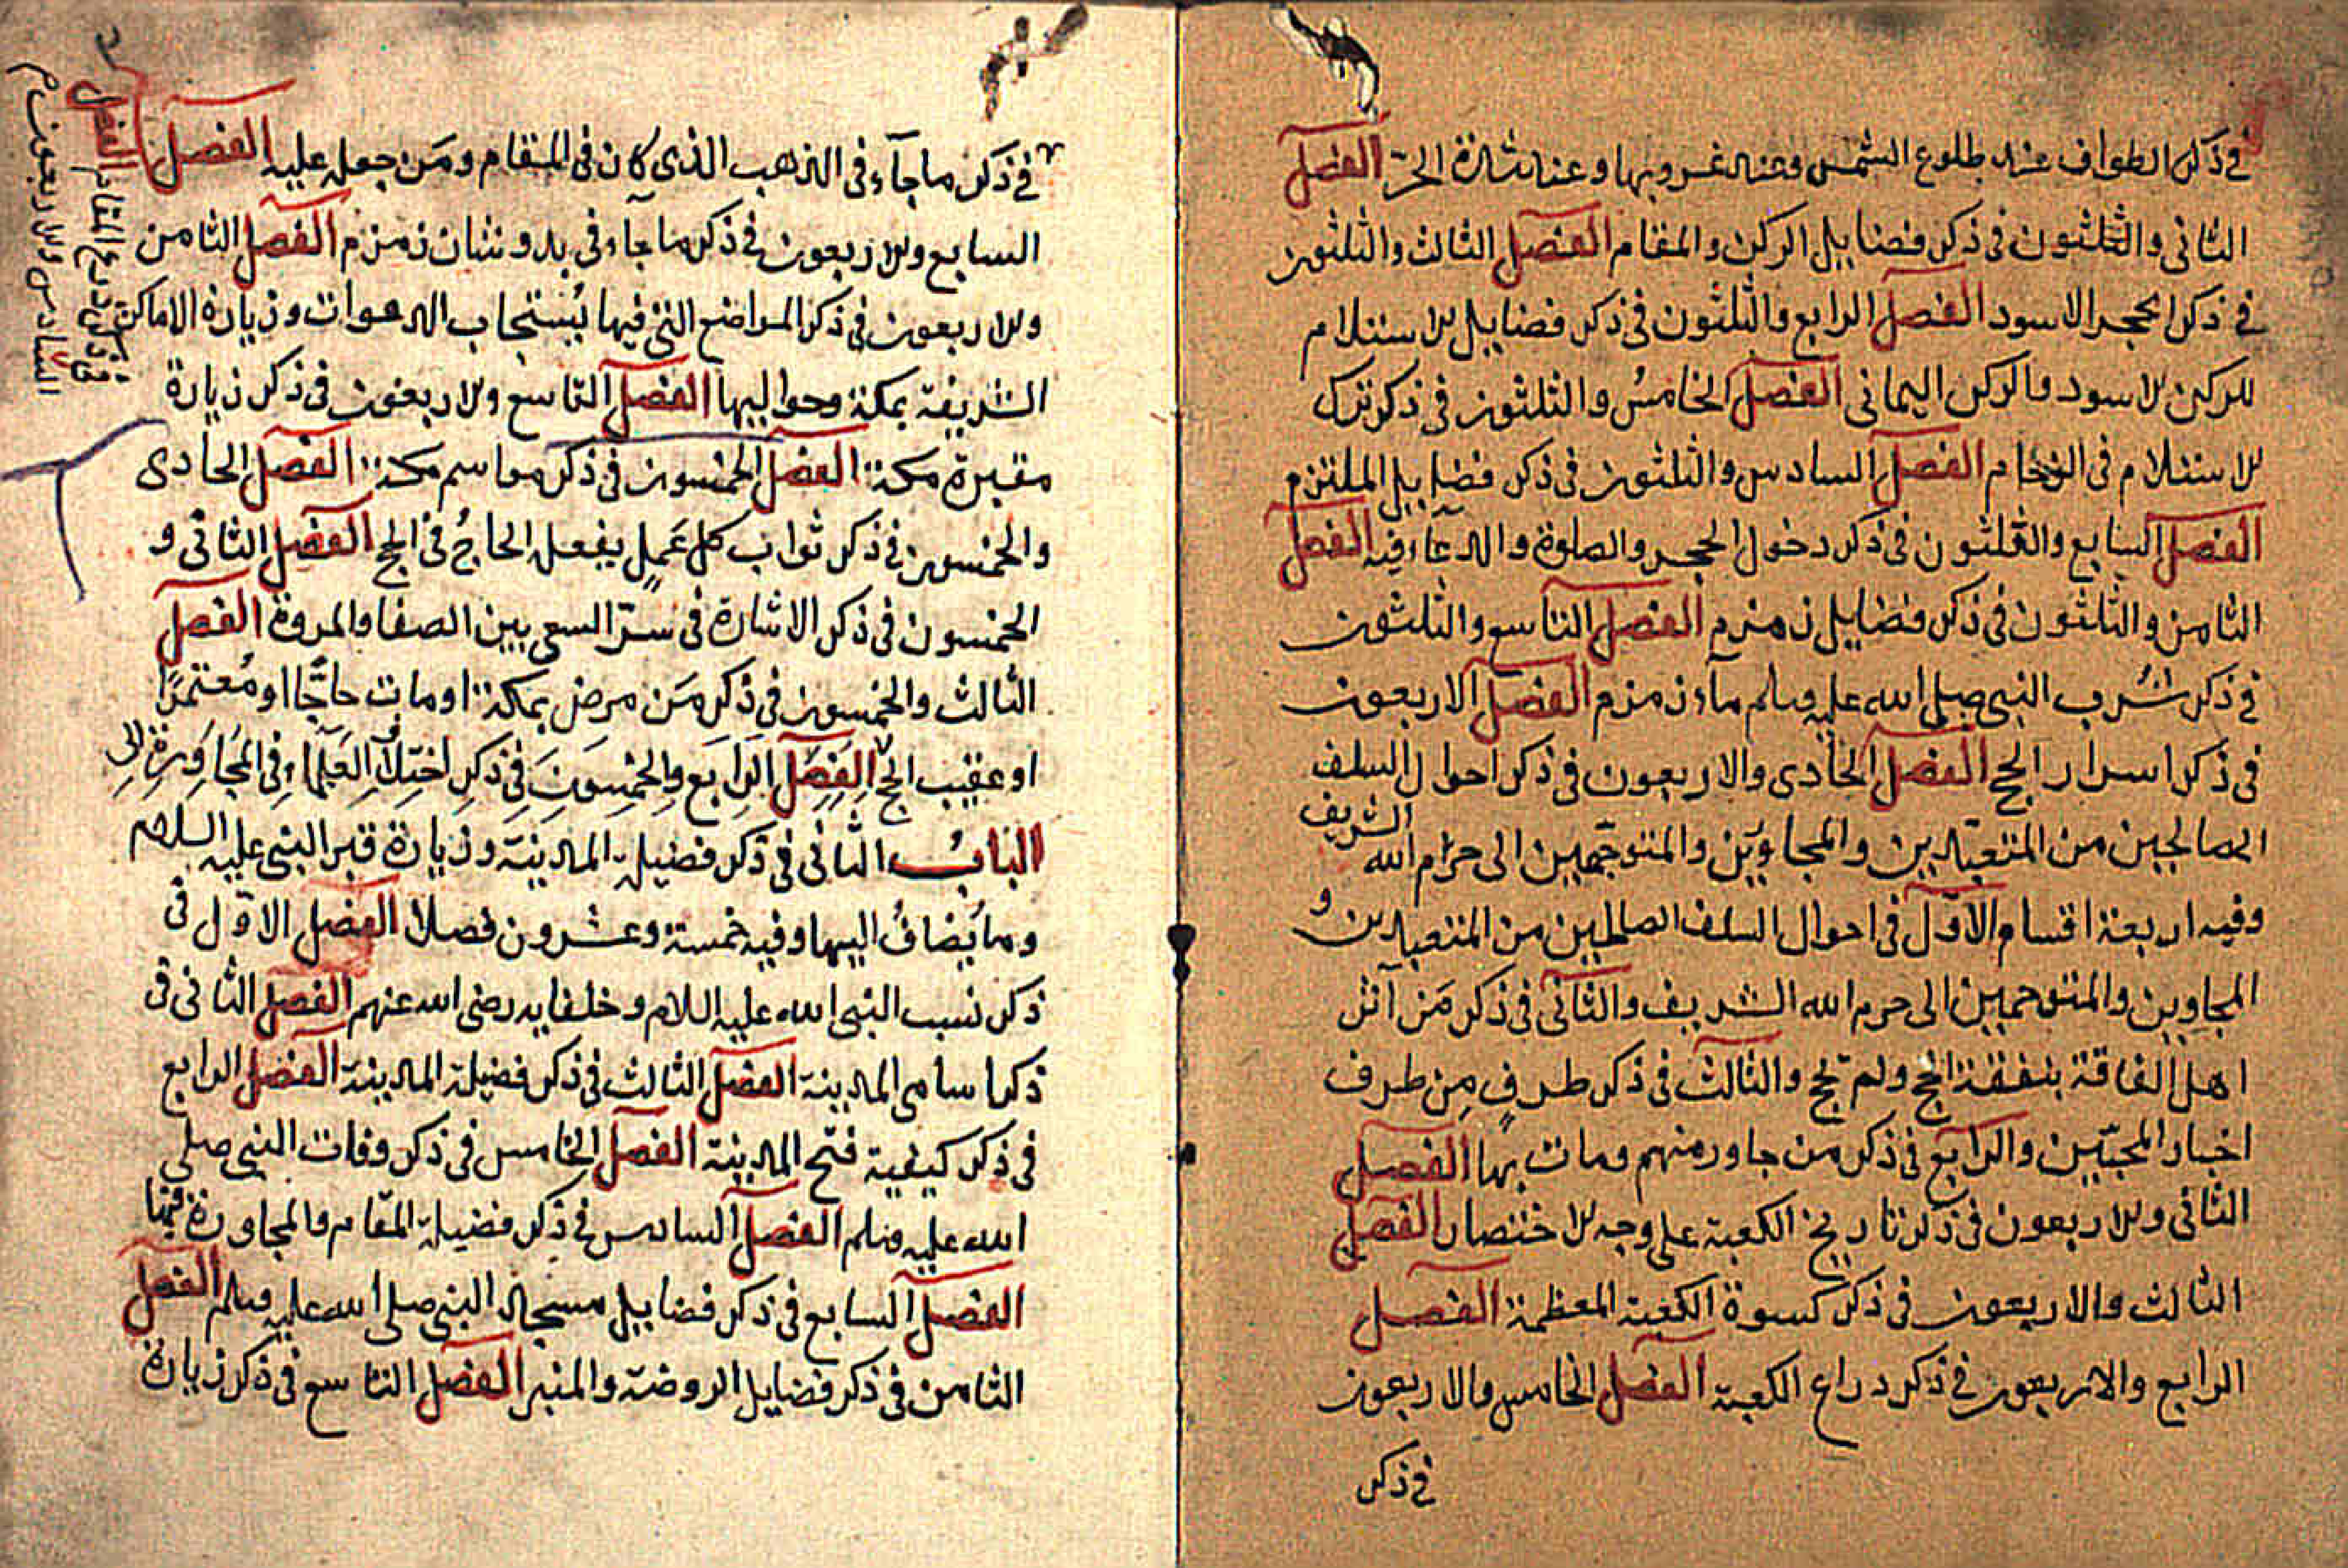 في ذكر الطواف عند طلوع الشمس وعند غروبها وعند شدة الحرّ الفصل
الثاني والثلثون في ذكر فضايل الركن والمقام الفصل الثالث والثلثون
في ذكر الحجر الاسود الفصل الرابع والثلثون في ذكر فضايل الاستلام
للركن الاسود والركن اليماني الفصل الخامس والثلثون في ذكر ترك
الاستلام في الزحام الفصل السادس والثلثون في ذكر فضايل الملتزم
الفصل السابع والثلثون في ذكر دخول الحجر والصلوة والدعاء فيه الفصل
الثامن والثلثون في ذكر فضايل زمزم الفصل التاسع والثلثون
في ذكر شُرب النبي صلى الله عليه وسلم ماء زمزم الفصل الاربعون
في ذكر اسرار الحج الفصل الحادى والاربعون في ذكر احوال السلف
الصالحين من المتعبّدين والمجاوين والمتوجّهين الى حرم الله الشريف
وفيه اربعة اقسام الاوّل في احوال السلف الصالحين من المتعبدين و
المجاوين والمتوجهين الى حرم الله الشريف والثاني في ذكر مَن آثر
اهل الفاقة بنفقة الحج ولم يحج والثالث في ذكر طرفٍ مِن طرف
اخبار المحبّين والرابع في ذكر من جاور منهم ومات بها الفصل
الثاني والاربعون في ذكر تاريخ الكعبة على وجه الاختصار الفصل
الثالث والاربعون في ذكر كسوة الكعبة المعظمة الفصل
الرابع والاربعون في ذكر دراع الكعبة الفصل الخامس والاربعون
في ذكر
في ذكر ما جآء في الذهب الذى كان في المقام ومَن جعله عليه الفصل
السابع والاربعون في ذكر ما جاء في بدو شان زمزم الفصل الثامن
والاربعون في ذكر المواضع التي فيها يُستجاب الدعوات وزيارة الاماكن
الشريفة بمكة وحواليها الفصل التاسع والاربعون في ذكر زيارة
مقبرة مكة الفصل الخمسون في ذكر مواسم مكة الفصل الحادى
والخمسون في ذكر ثواب كل عَملٍ يفعله الحاجُ في الحج الفصل الثاني و
الخمسون في ذكر الاشارة في سرّ السعى بين الصفا والمروة الفصل
الثالث والخمسون في ذكر مَن مرض بمكة او مات حاجًّا او مُعتمرًا
او عقيب الحج الفصل الرابع والخمسون في ذكر اختلاف العلماء في المجاورة
الباب الثاني في ذكر فضيلة المدينة وزيارة قبر النبي عليه السلم
وما يُضافُ اليها وفيه خمسة وعشرون فصلاً الفصل الاوّل في
ذكر نسب النبي الله عليه اللام وخلفايه رضى الله عنهم الفصل الثاني في
ذكر اسامى المدينة الفصل الثالث في ذكر فضيلة المدينة الفصل الرابع
في ذكر كيفية فتح المدينة الفصل الخامس في ذكر وفات النبي صلى
الله عليه وسلم الفصل السادس في ذكر فضيلة المقام والمجاورة فيها
الفصل السابع في ذكر فضايل مسجد النبي صلى الله عليه وسلم الفصل
الثامن في ذكر فضايل الروضة والمنبر الفصل التاسع في ذكر زيارة
الفصل
السادس والاربعون
في ذكر ذرع المقام